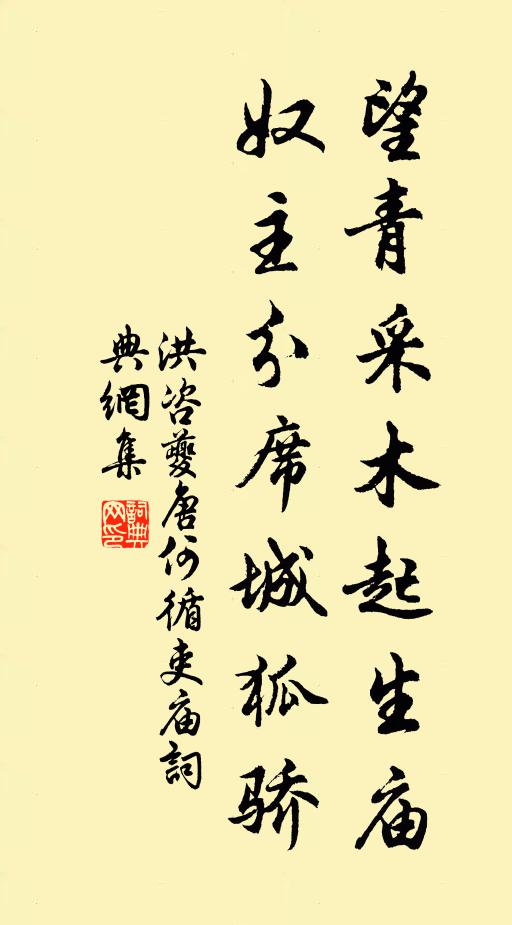 望青采木起生庙
奴主分席城狐骄
洪咨夔唐何循吏庙詞
典網集
詞典网印